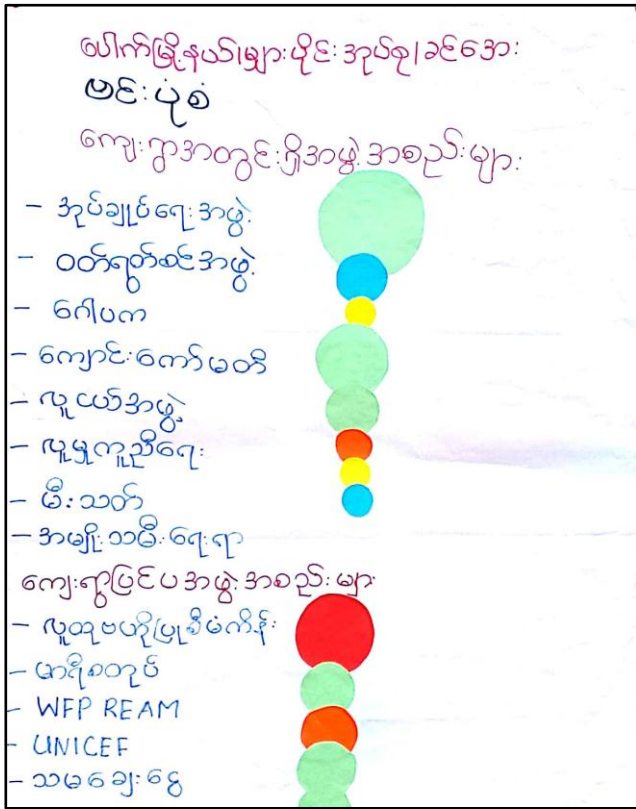 ပေါက်မြို့နယ်၊မျှားပိုင်းအုပ်စု၊ခင်အေး
ဗင်းပုံစံ
ကျေးရွာအတွင်းရှိအဖွဲ့အစည်းများ
- အုပ်ချုပ်ရေးအဖွဲ့
- ဝတ်ရွတ်စဉ်အဖွဲ့
- ဂေါပက
- ကျောင်းကော်မတီ
- လူငယ်အဖွဲ့
- လူမှုကူညီရေး
- မီးသတ်
- အမျိုးသမီးရေးရာ
ကျေးရွာပြင်ပအဖွဲ့အစည်းများ
- လူထုဗဟိုပြုစီမံကိန်း
- မာရီစတုပ်
- WFP REAM
- UNICEF
- သမချေးငွေ